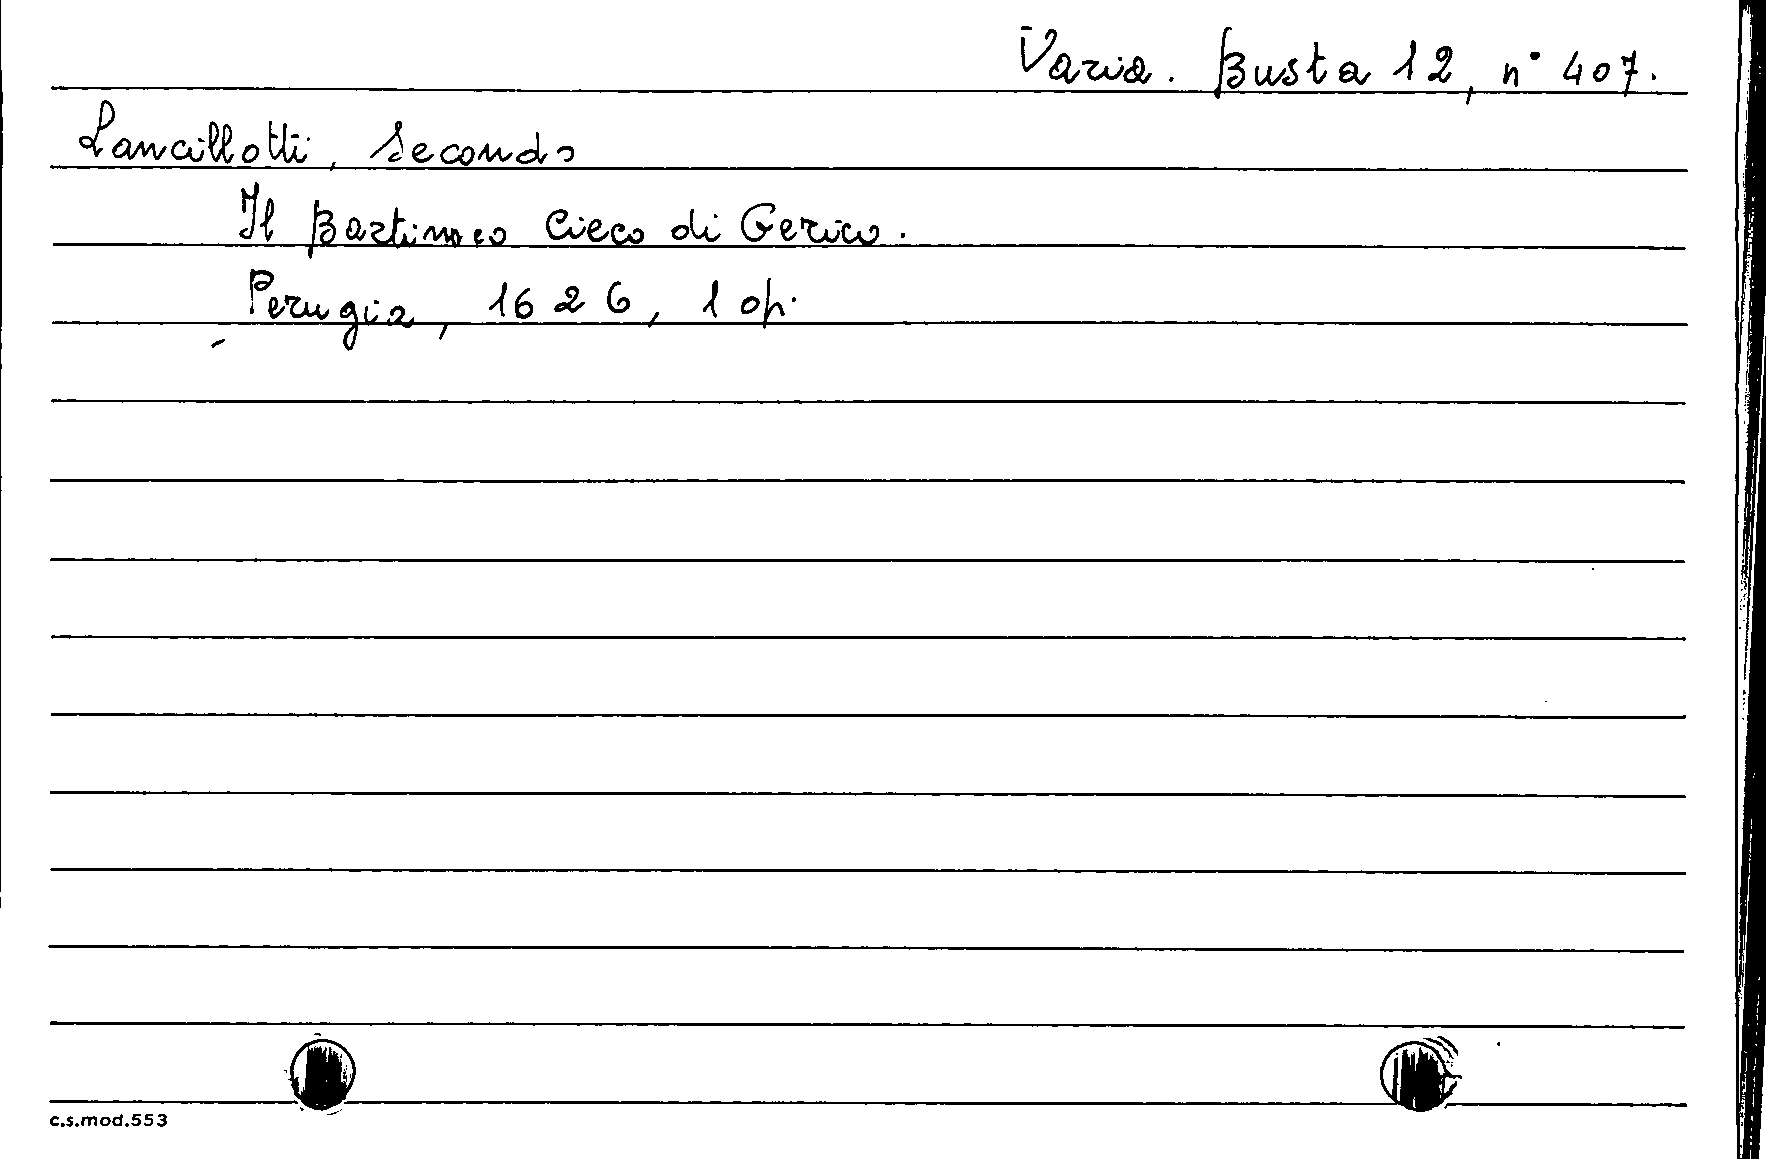 Varia. Busta 12, n° 407.
Lancillotti, Secondo
Il Bartimeo Cieco di Gerico.
Perugia, 1626, 1 op.
c.s.mod.553